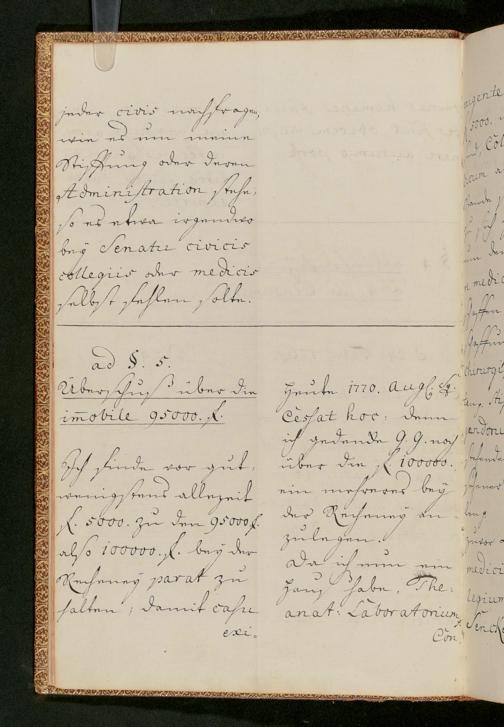 jeder civis nachfragen,
wie es um meine
Stifftung oder deren
Administration stehe,
so es etwa irgendwo
bey Senatu civicis
collegiis oder medicis
selbst fehlen solte.
ad §. 5.
Überschuß über die
immobile 95000. f.
Ich finde vor gut,
wenigstens allezeit
f. 5000. zu den 95000 f.
also 100000. f. bey der
Recheney parat zu
halten, damit casu
exi-
heute 1770. Aug.
Cessat hoc: denn
ich gedencke G. G. noch
über die f 100000.
ein mehreres bey
der Recheney an
zulegen.
Da ich nun ein
Hauß habe, The-
anat: Laboratorium
Con